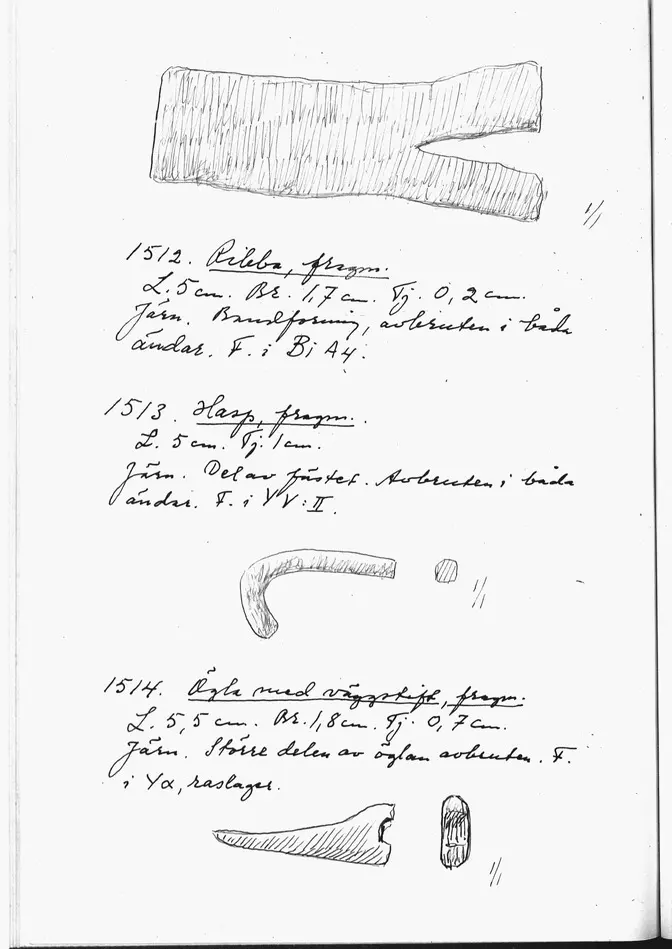 1/1
1512. Ribba, fragm.
L. 5 cm. Br. 1,7 cm. Tj. 0,2 cm.
Järn. Bandformig, avbruten i båda
ändar. F. i Bi A4.
1513. Hasp, fragm.
L. 5 cm. Tj. 1 cm.
Järn. Del av fästet. Avbruten i båda
ändar. F. i YV:II.
1/1
1514. Ögla med väggstift, fragm.
L. 5,5 cm. Br. 1,8 cm. Tj. 0,7 cm.
Järn. Större delen av öglan avbruten. F.
i Yα, raslager.
1/1